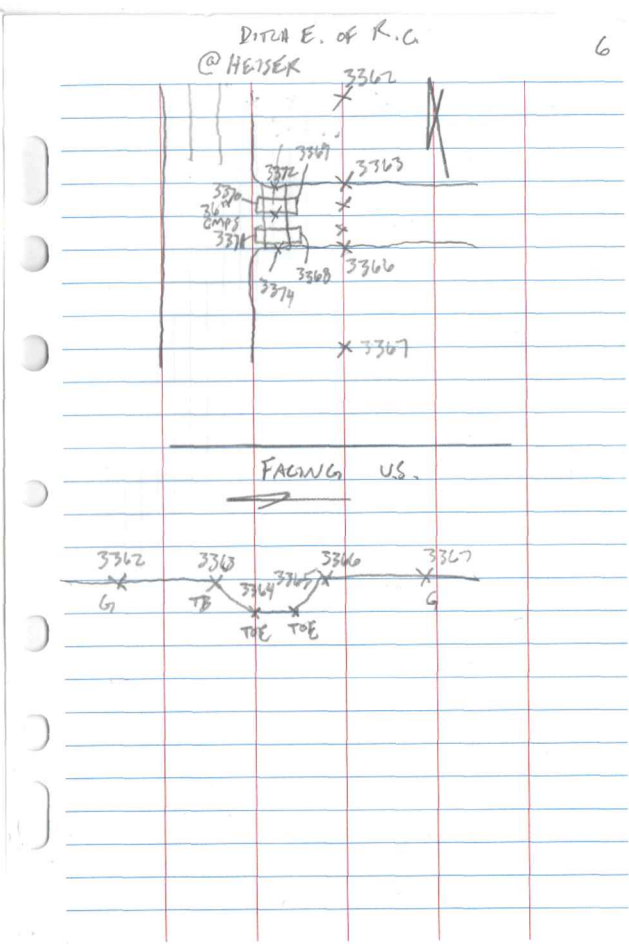 DITCH E. OF R.G.
@ HEISER
6
3362
3369
3372
3363
3370
36"
CMPS
3371
3366
3374
3368
3367
FACING U.S.
3362
3363
3364
3365
3366
3367
G
TB
TOE
TOE
G